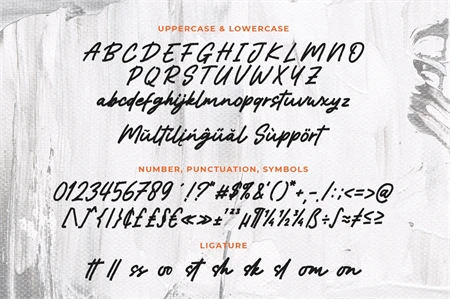 UPPERCASE & LOWERCASE
ABCDEFGHIJKLMNO
PQRSTUVWXYZ
abcdefghijklmnopqrstuvwxyz
Mŭltĩlįńğüäl Sùppört
NUMBER, PUNCTUATION, SYMBOLS
0123456789 '!?"#$%&'()*+,-./:;<=>@
[\]^{|}¢£¥§€«»±¹²³µ¶¼½¾ß÷∫≈≠≤≥
LIGATURE
tt ll ss oo st sh sk sl om on